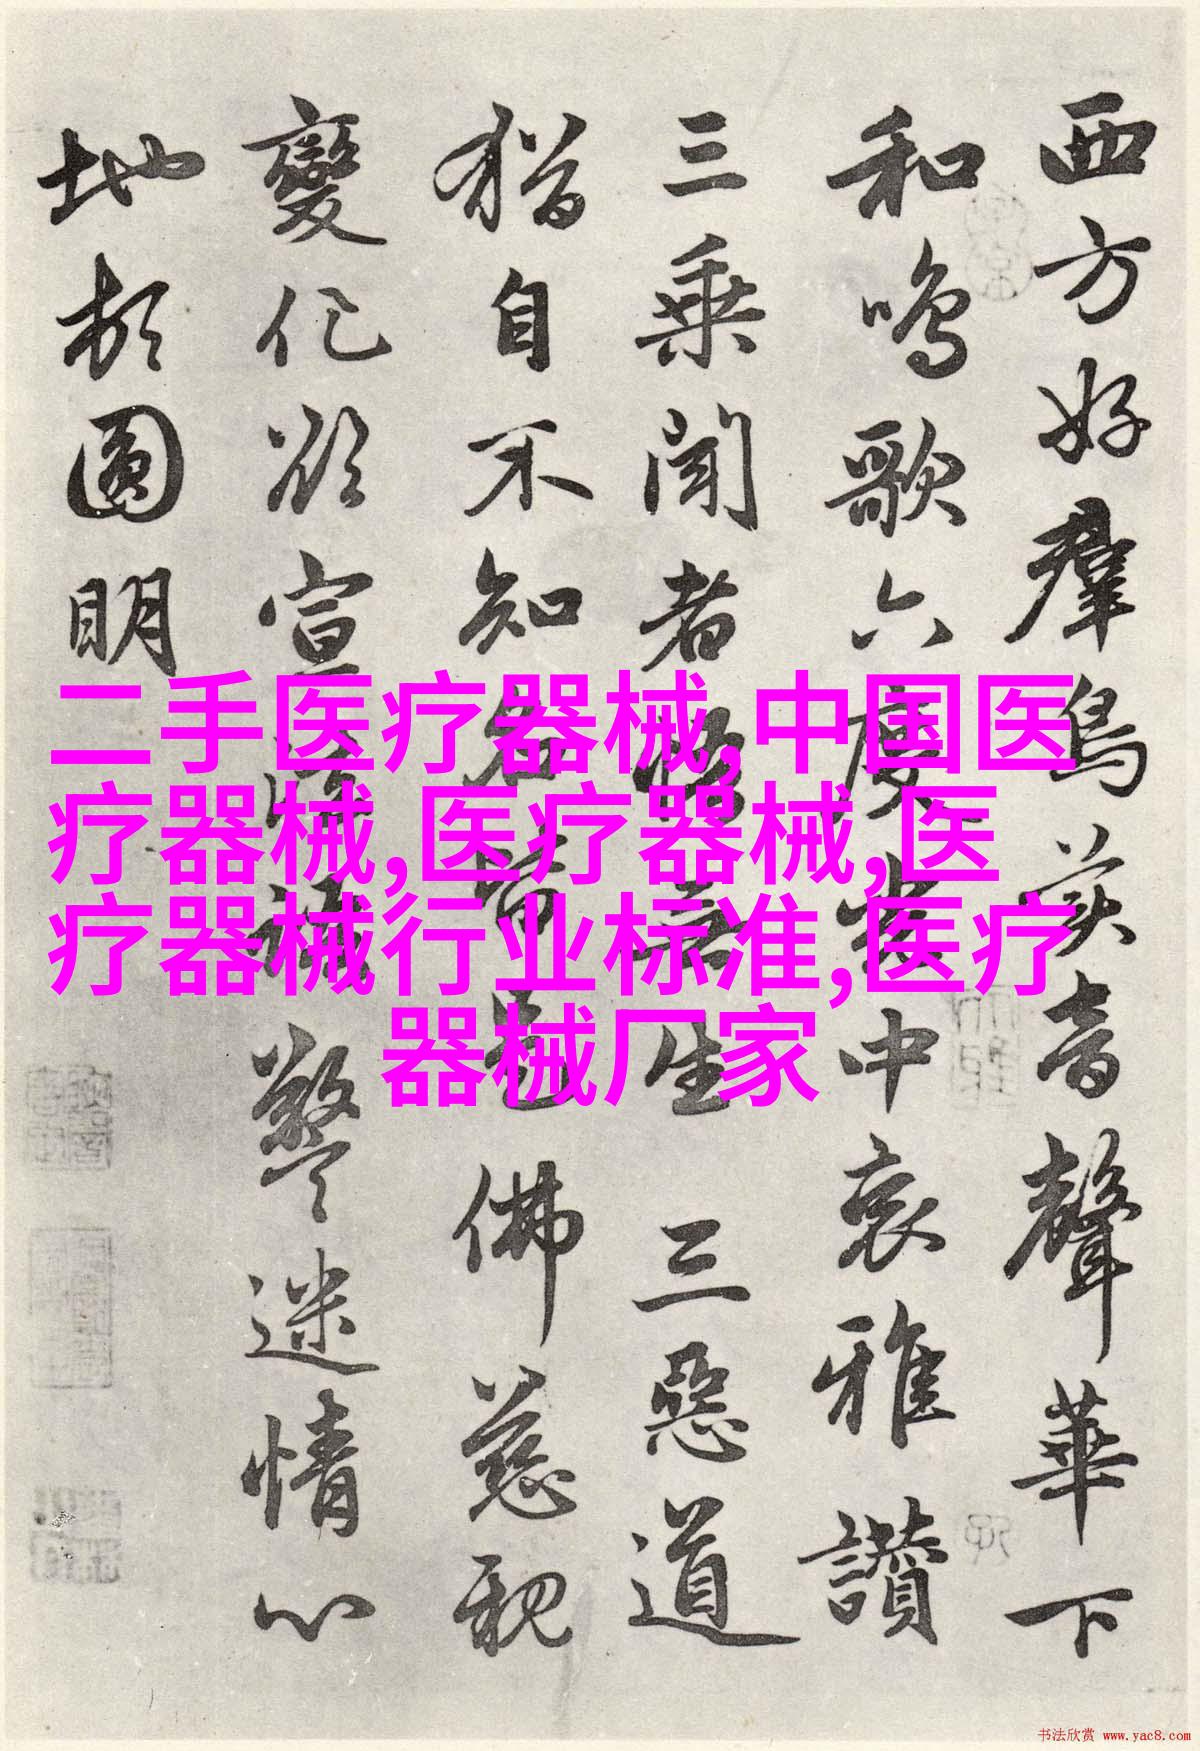 西方好群鳥美音聲華下
和鳴歌六度中哀雅讚
三乘聞者悟無生三惡道
猶自不知名皆是佛慈親
變化欲宣警迷情心
地頓圓明
二手医疗器械,中国医
疗器械,医疗器械,医
疗器械行业标准,医疗
器械厂家
书法欣赏 www.yac8.com